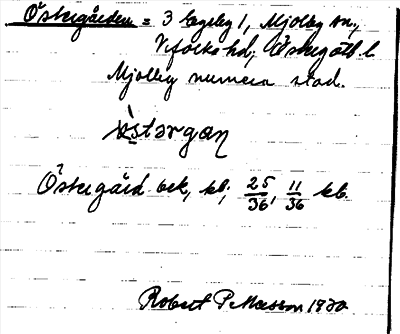 Östergården = 3 lägenh 1, Mjölby sn.,
Vifolka hd, Östergötl. l.
Mjölby numera stad.
östərgaɳ
Östergård bek, kl; 25/36, 11/36 kb.
Robert P. 1930